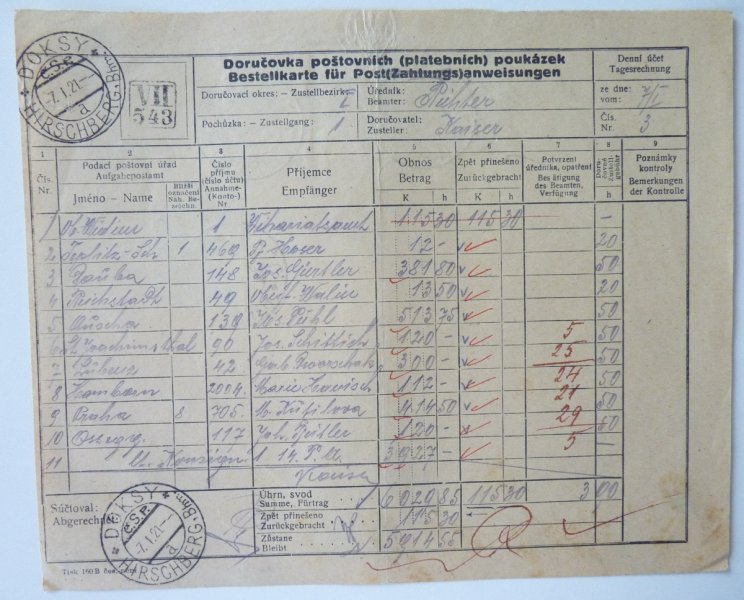 DOKSY
Č.S.P.
-7.I.21.-
a
HIRSCHBERG-Böhm.
VII
543
Doručovka poštovních (platebních) poukázek
Bestellkarte für Post(Zahlungs)anweisungen
Denní účet
Tagesrechnung
Doručovací okres: - Zustellbezirk: I
Úředník:
Beamter: Richter
ze dne:
vom: 7/I
Pochůzka: - Zustellgang: 1
Doručovatel:
Zusteller Kaiser
Čís.
Nr. 3
1 2 3 4 5 6 7 8 9
Čís.
Nr.
Podací poštovní úřad
Aufgabepostamt
Jméno - Name
Bližší
označení
Näh. Be-
zeichn.
Číslo
příjmu
(číslo účtu)
Annahme-
(Konto-)
Nr
Příjemce
Empfänger
Obnos
Betrag
K h
Zpět přineseno
Zurückgebracht
K h
Potvrzení
úředníka, opatření
Bestätigung
des Beamten,
Verfügung
Doru-
čovné
Zustell-
gebühr
h
Poznámky
kontroly
Bemerkungen
der Kontrolle
1 1 115 30 115 30 -
2 Teplitz-Sch 1 469 Hoser 12 - 20
3 Dauba 148 Jos. Gürtler 381 80 50
4 Reichstadt 49 13 50 20
5 Auscha 139 513 75 50
6 St Joachimsthal 90 Jos. Schittich 120 - 5 50
7 42 300 - 25 50
8 2004 Marie 112 - 24 50
9 Praha 8 705 414 50 21 50
29
10 Ossegg. 117 Joh. 120 - 60
11 1 14 3927 - 5 -
Kaiser
Súčtoval:
Abgerechnet:
Úhrn, svod
Summe, Fürtrag 6029 85 115 30 3 00
Zpět přineseno
Zurückgebracht 115 30
Zůstane
Bleibt 5914 55
DOKSY
Č.S.P.
-7.I.21.-
a
HIRSCHBERG-Böhm.